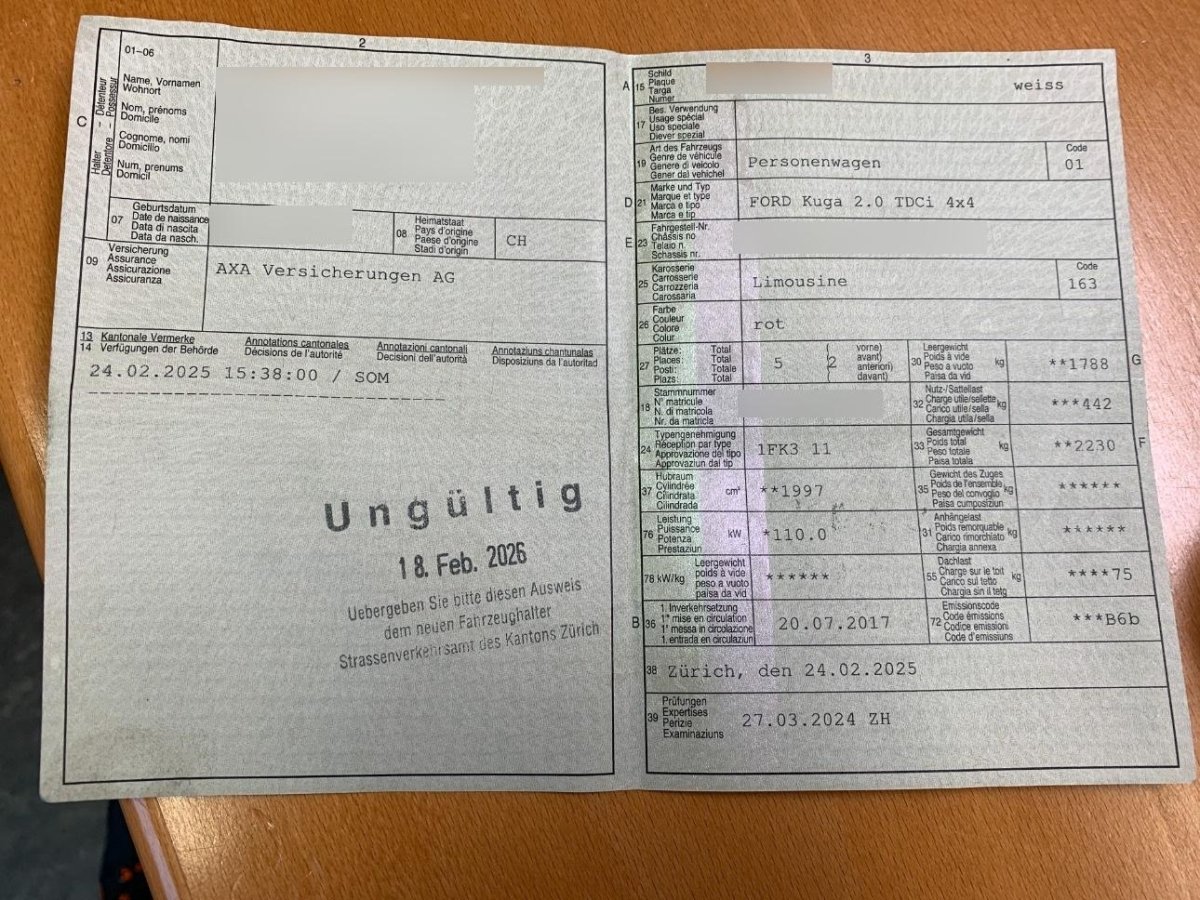 2
01-06
C
Halter - Détenteur
Detentore - Possessur
Name, Vornamen
Wohnort
Nom, prénoms
Domicile
Cognome, nomi
Domicilio
Num, prenums
Domicil
07
Geburtsdatum
Date de naissance
Data di nascita
Data da nasch.
08
Heimatstaat
Pays d'origine
Paese d'origine
Stadi d'origin
CH
09
Versicherung
Assurance
Assicurazione
Assicuranza
AXA Versicherungen AG
13 Kantonale Vermerke Annotations cantonales Annotazioni cantonali Annotaziuns chantunalas
14 Verfügungen der Behörde Décisions de l'autorité Decisioni dell'autorità Disposiziuns da l'autoritad
24.02.2025 15:38:00 / SOM
Ungültig
18. Feb. 2026
Uebergeben Sie bitte diesen Ausweis
dem neuen Fahrzeughalter
Strassenverkehrsamt des Kantons Zürich
3
A 15
Schild
Plaque
Targa
Numer
weiss
17
Bes. Verwendung
Usage spécial
Uso speciale
Diever spezial
19
Art des Fahrzeugs
Genre de véhicule
Genere di veicolo
Gener dal vehichel
Personenwagen
Code
01
D 21
Marke und Typ
Marque et type
Marca e tipo
Marca e tip
FORD Kuga 2.0 TDCi 4x4
E 23
Fahrgestell-Nr.
Châssis no
Telaio n.
Schassis nr.
25
Karosserie
Carrosserie
Carrozzeria
Carossaria
Limousine
Code
163
26
Farbe
Couleur
Colore
Colur
rot
27
Plätze: Total
Places: Total
Posti: Totale
Plazs: Total
5
(2
vorne)
avant)
anteriori)
davant)
30
Leergewicht
Poids à vide
Peso a vuoto
Paisa da vid
kg
**1788
G
18
Stammnummer
N° matricule
N. di matricola
Nr. da matricla
32
Nutz-/Sattellast
Charge utile/sellette
Carico utile/sella
Chargia utila/sella
kg
***442
24
Typengenehmigung
Réception par type
Approvazione del tipo
Approvaziun dal tip
1FK3 11
33
Gesamtgewicht
Poids total
Peso totale
Paisa totala
kg
**2230
F
37
Hubraum
Cylindrée
Cilindrata
Cilindrada
cm³
**1997
35
Gewicht des Zuges
Poids de l'ensemble
Peso del convoglio
Paisa cumposiziun
kg
******
76
Leistung
Puissance
Potenza
Prestaziun
kW
*110.0
31
Anhängelast
Poids remorquable
Carico rimorchiato
Chargia annexa
kg
******
78 kW/kg
Leergewicht
poids à vide
peso a vuoto
paisa da vid
******
55
Dachlast
Charge sur le toit
Carico sul tetto
Chargia sin il tetg
kg
****75
B 36
1. Inverkehrsetzung
1re mise en circulation
1a messa in circolazione
1. entrada en circulaziun
20.07.2017
72
Emissionscode
Code émissions
Codice emissioni
Code d'emissiuns
***B6b
38 Zürich, den 24.02.2025
39
Prüfungen
Expertises
Perizie
Examinaziuns
27.03.2024 ZH